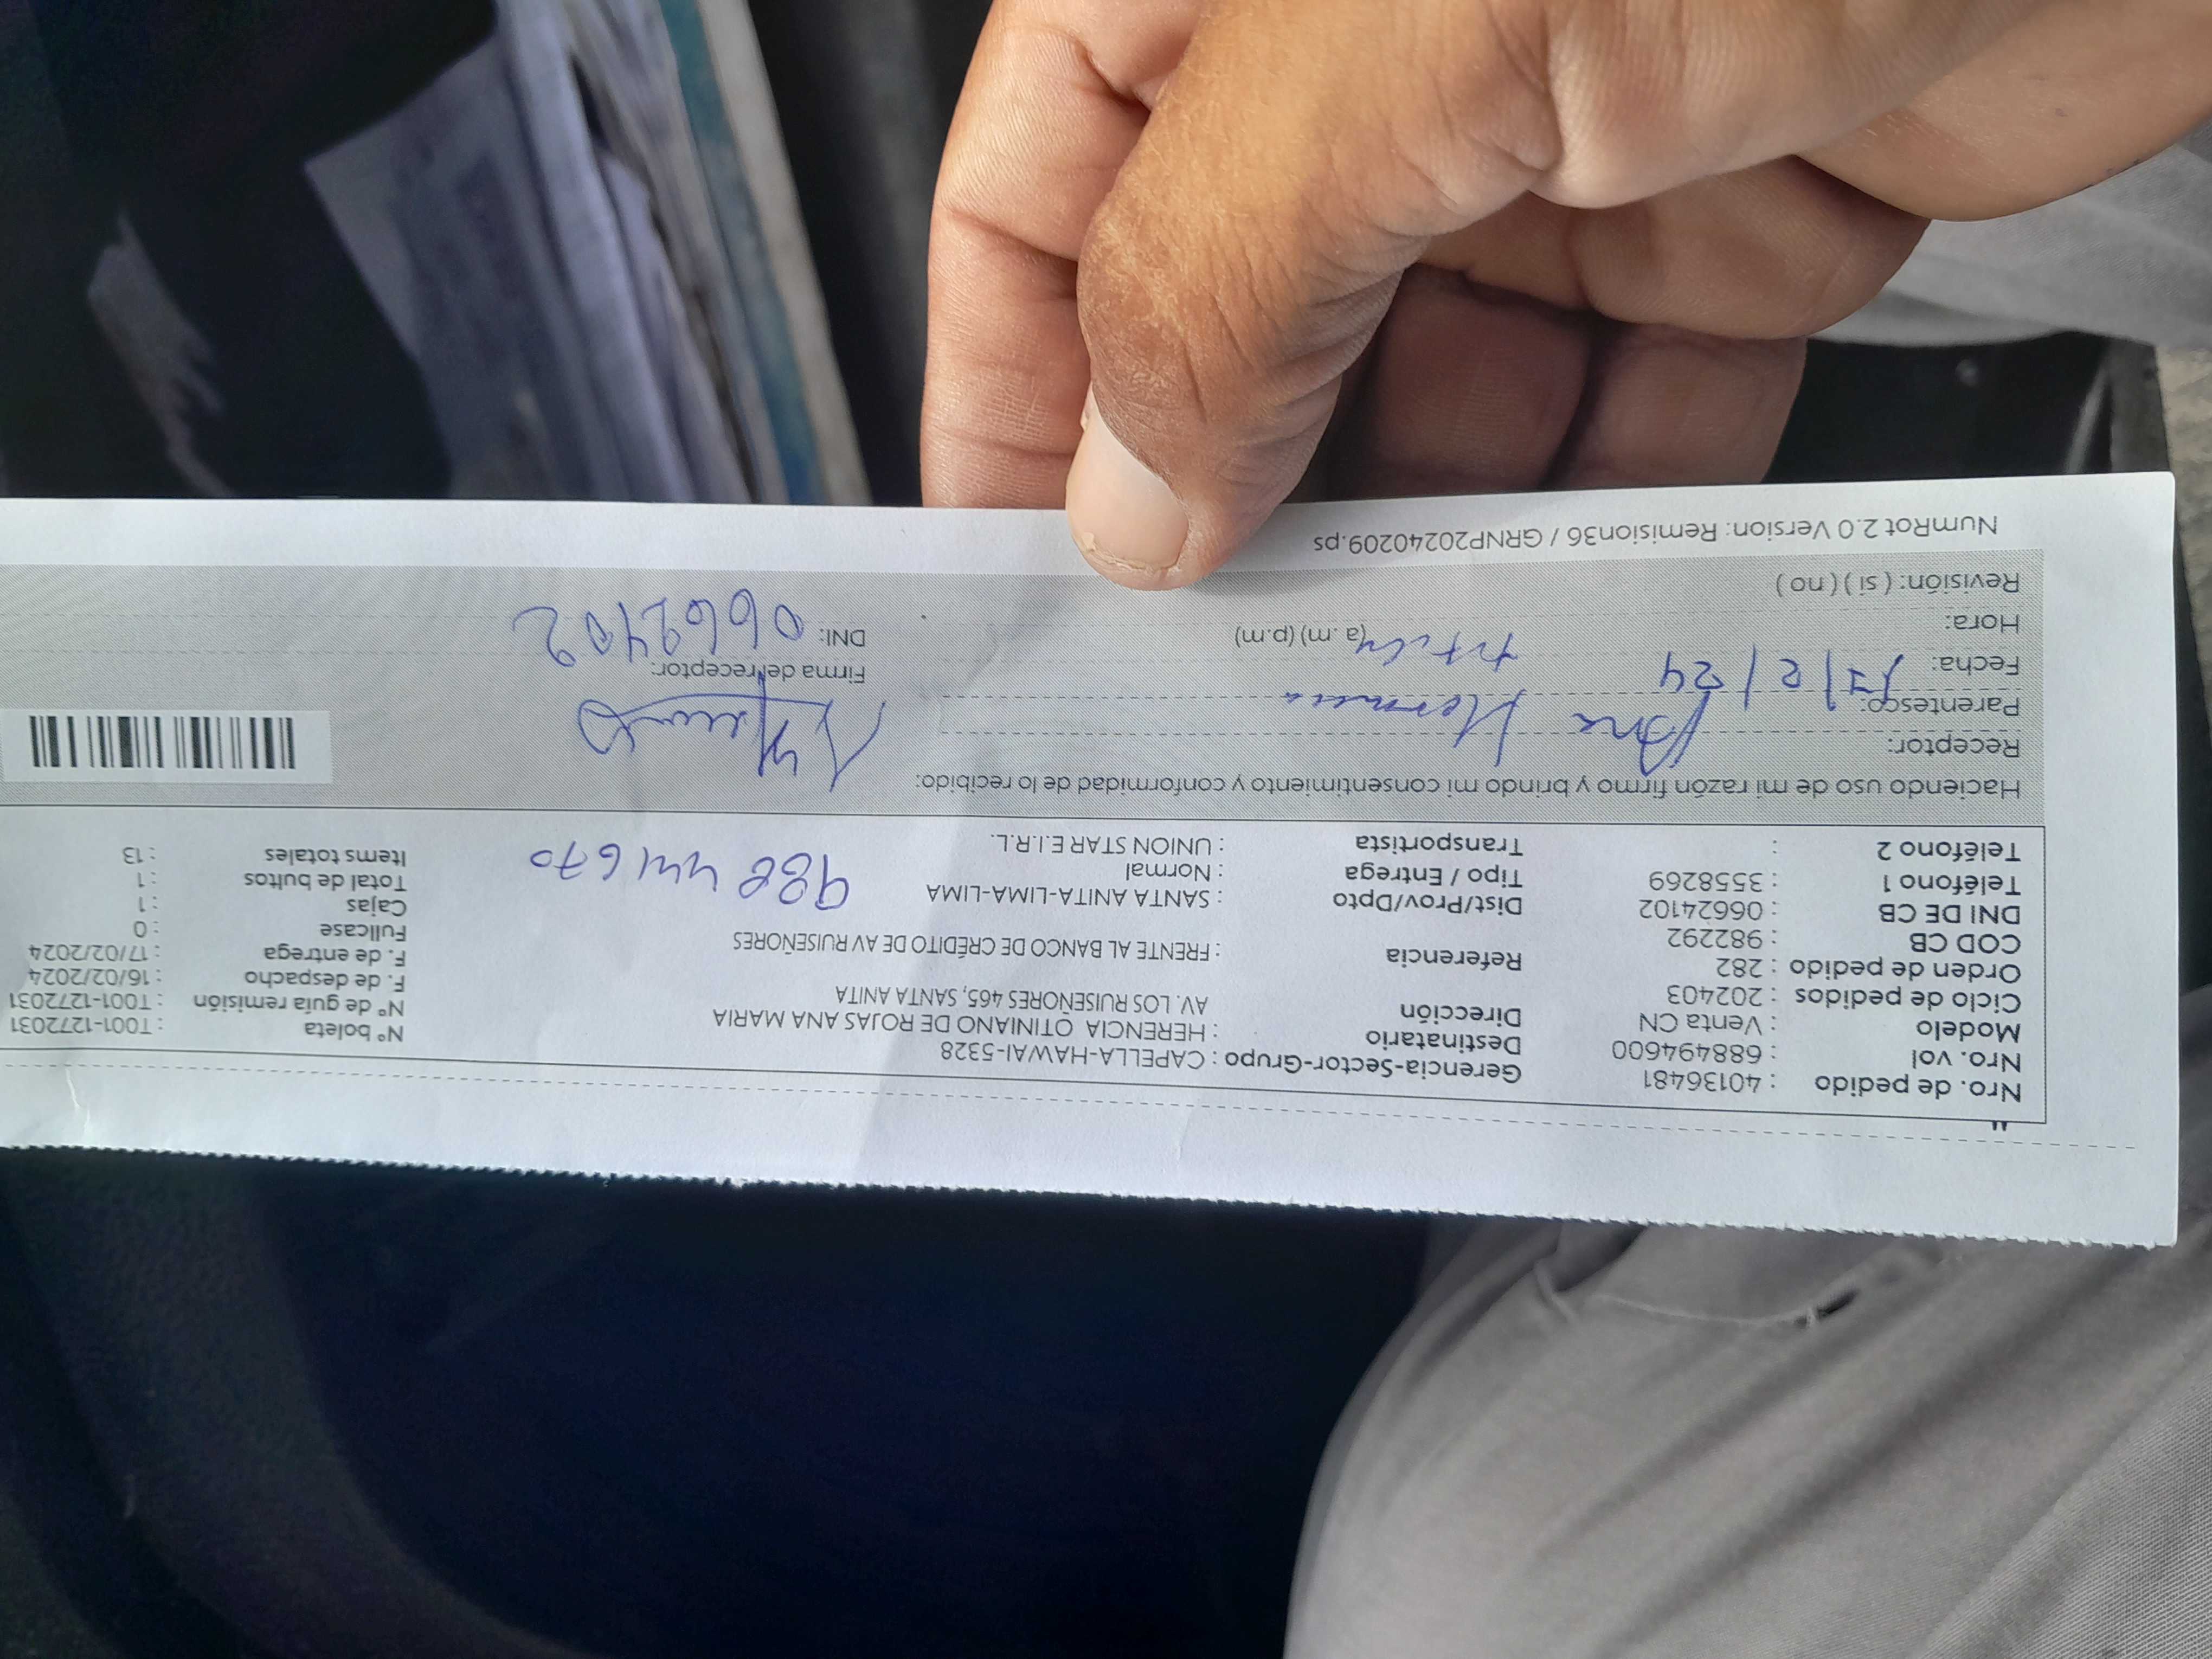 Nro. de pedido : 40136481
Nro. vol : 688494600
Modelo : Venta CN
Ciclo de pedidos : 202403
Orden de pedido : 282
COD CB : 982292
DNI DE CB : 06624102
Teléfono 1 : 3558269
Teléfono 2 :
Gerencia-Sector-Grupo : CAPELLA-HAWAI-5328
Destinatario : HERENCIA OTINIANO DE ROJAS ANA MARIA
Dirección AV. LOS RUISEÑORES 465, SANTA ANITA
Referencia : FRENTE AL BANCO DE CRÉDITO DE AV RUISEÑORES
Dist/Prov/Dpto : SANTA ANITA-LIMA-LIMA
Tipo / Entrega : Normal
Transportista : UNION STAR E.I.R.L.
988 441670
N° boleta : T001-1272031
N° de guía remisión : T001-1272031
F. de despacho : 16/02/2024
F. de entrega : 17/02/2024
Fullcase : 0
Cajas : 1
Total de bultos : 1
Items totales : 13
Haciendo uso de mi razón firmo y brindo mi consentimiento y conformidad de lo recibido:
Receptor: Ana
Parentesco:
Fecha: 17/2/24
Hora: (a. m) (p.m)
Revisión: ( si ) ( no )
Firma del receptor:
DNI: 0662402
NumRot 2.0 Version: Remision36 / GRNP20240209.ps